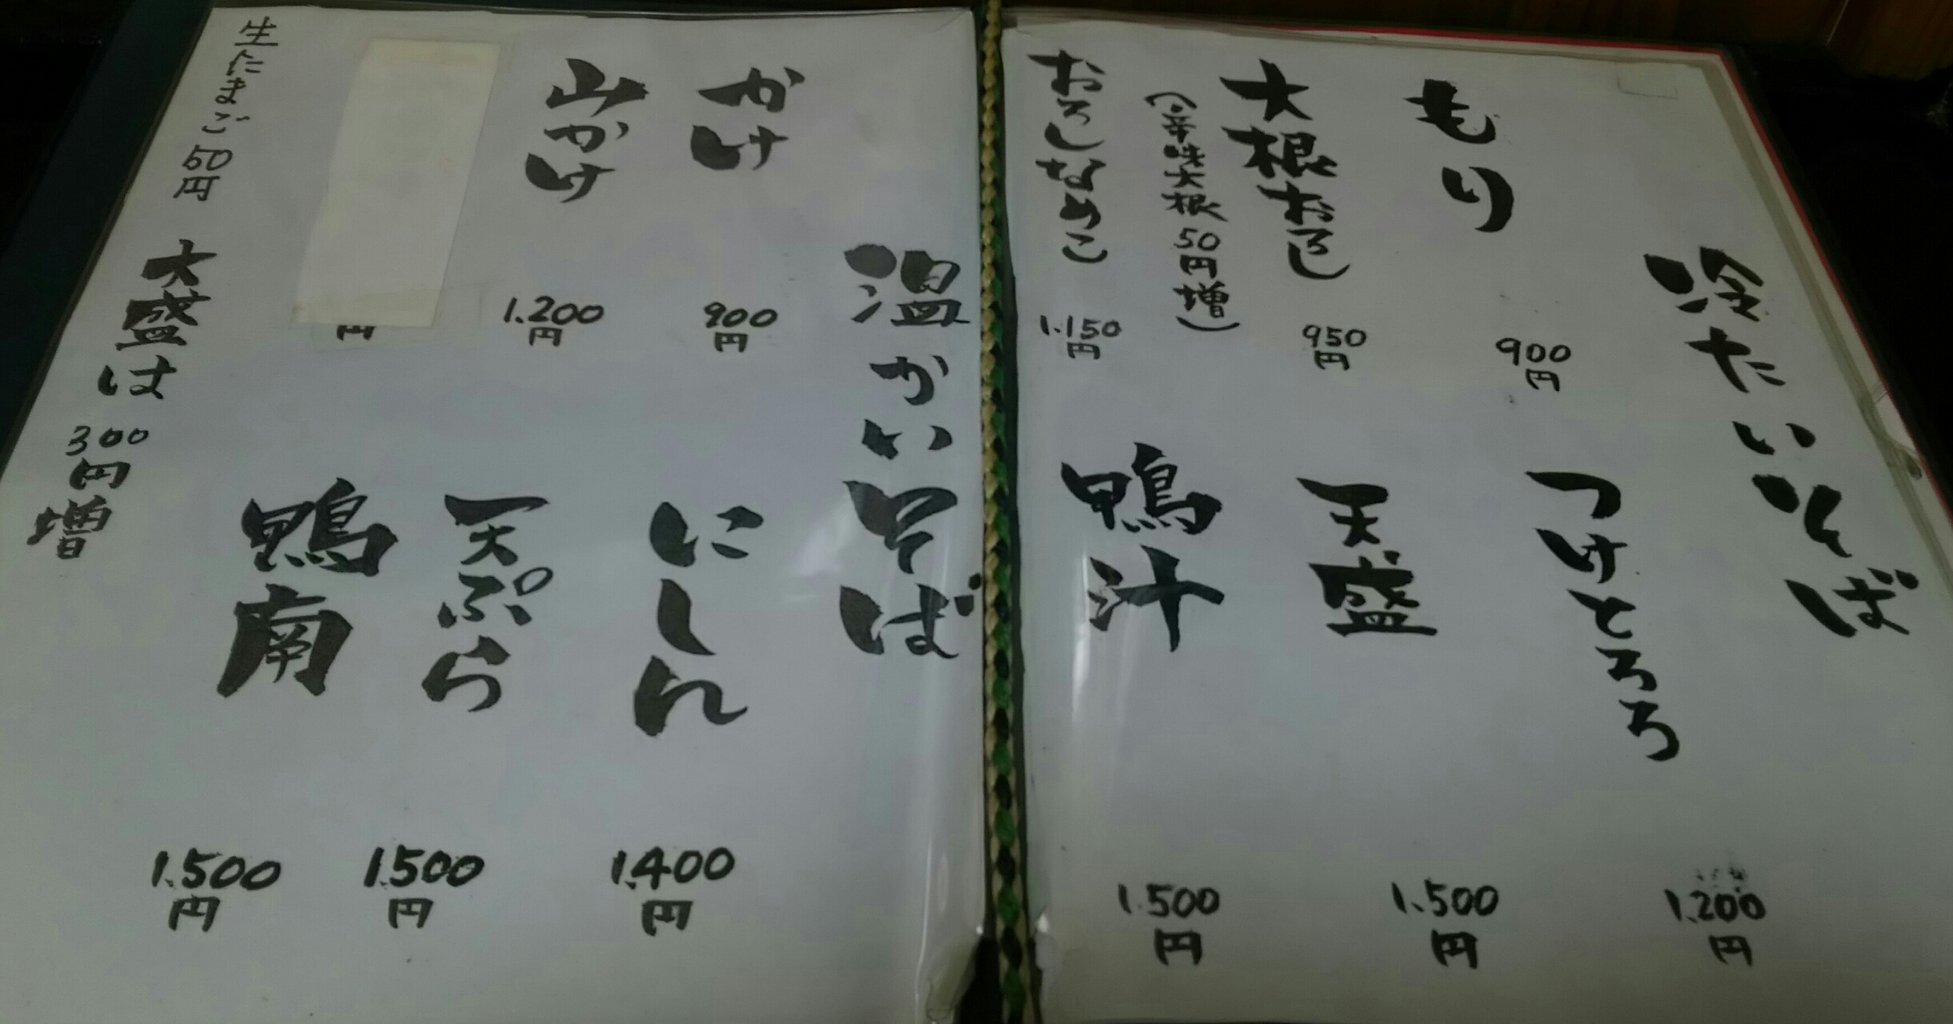 冷たいそば
もり
900円
大根おろし
950円
(辛味大根50円増)
おろしなめこ
1.150円
つけとろろ
1.200円
天盛
1.500円
鴨汁
1.500円
温かいそば
かけ
900円
山かけ
1.200円
円
にしん
1.400円
天ぷら
1.500円
鴨南
1.500円
生たまご 50円
大盛は 300円増